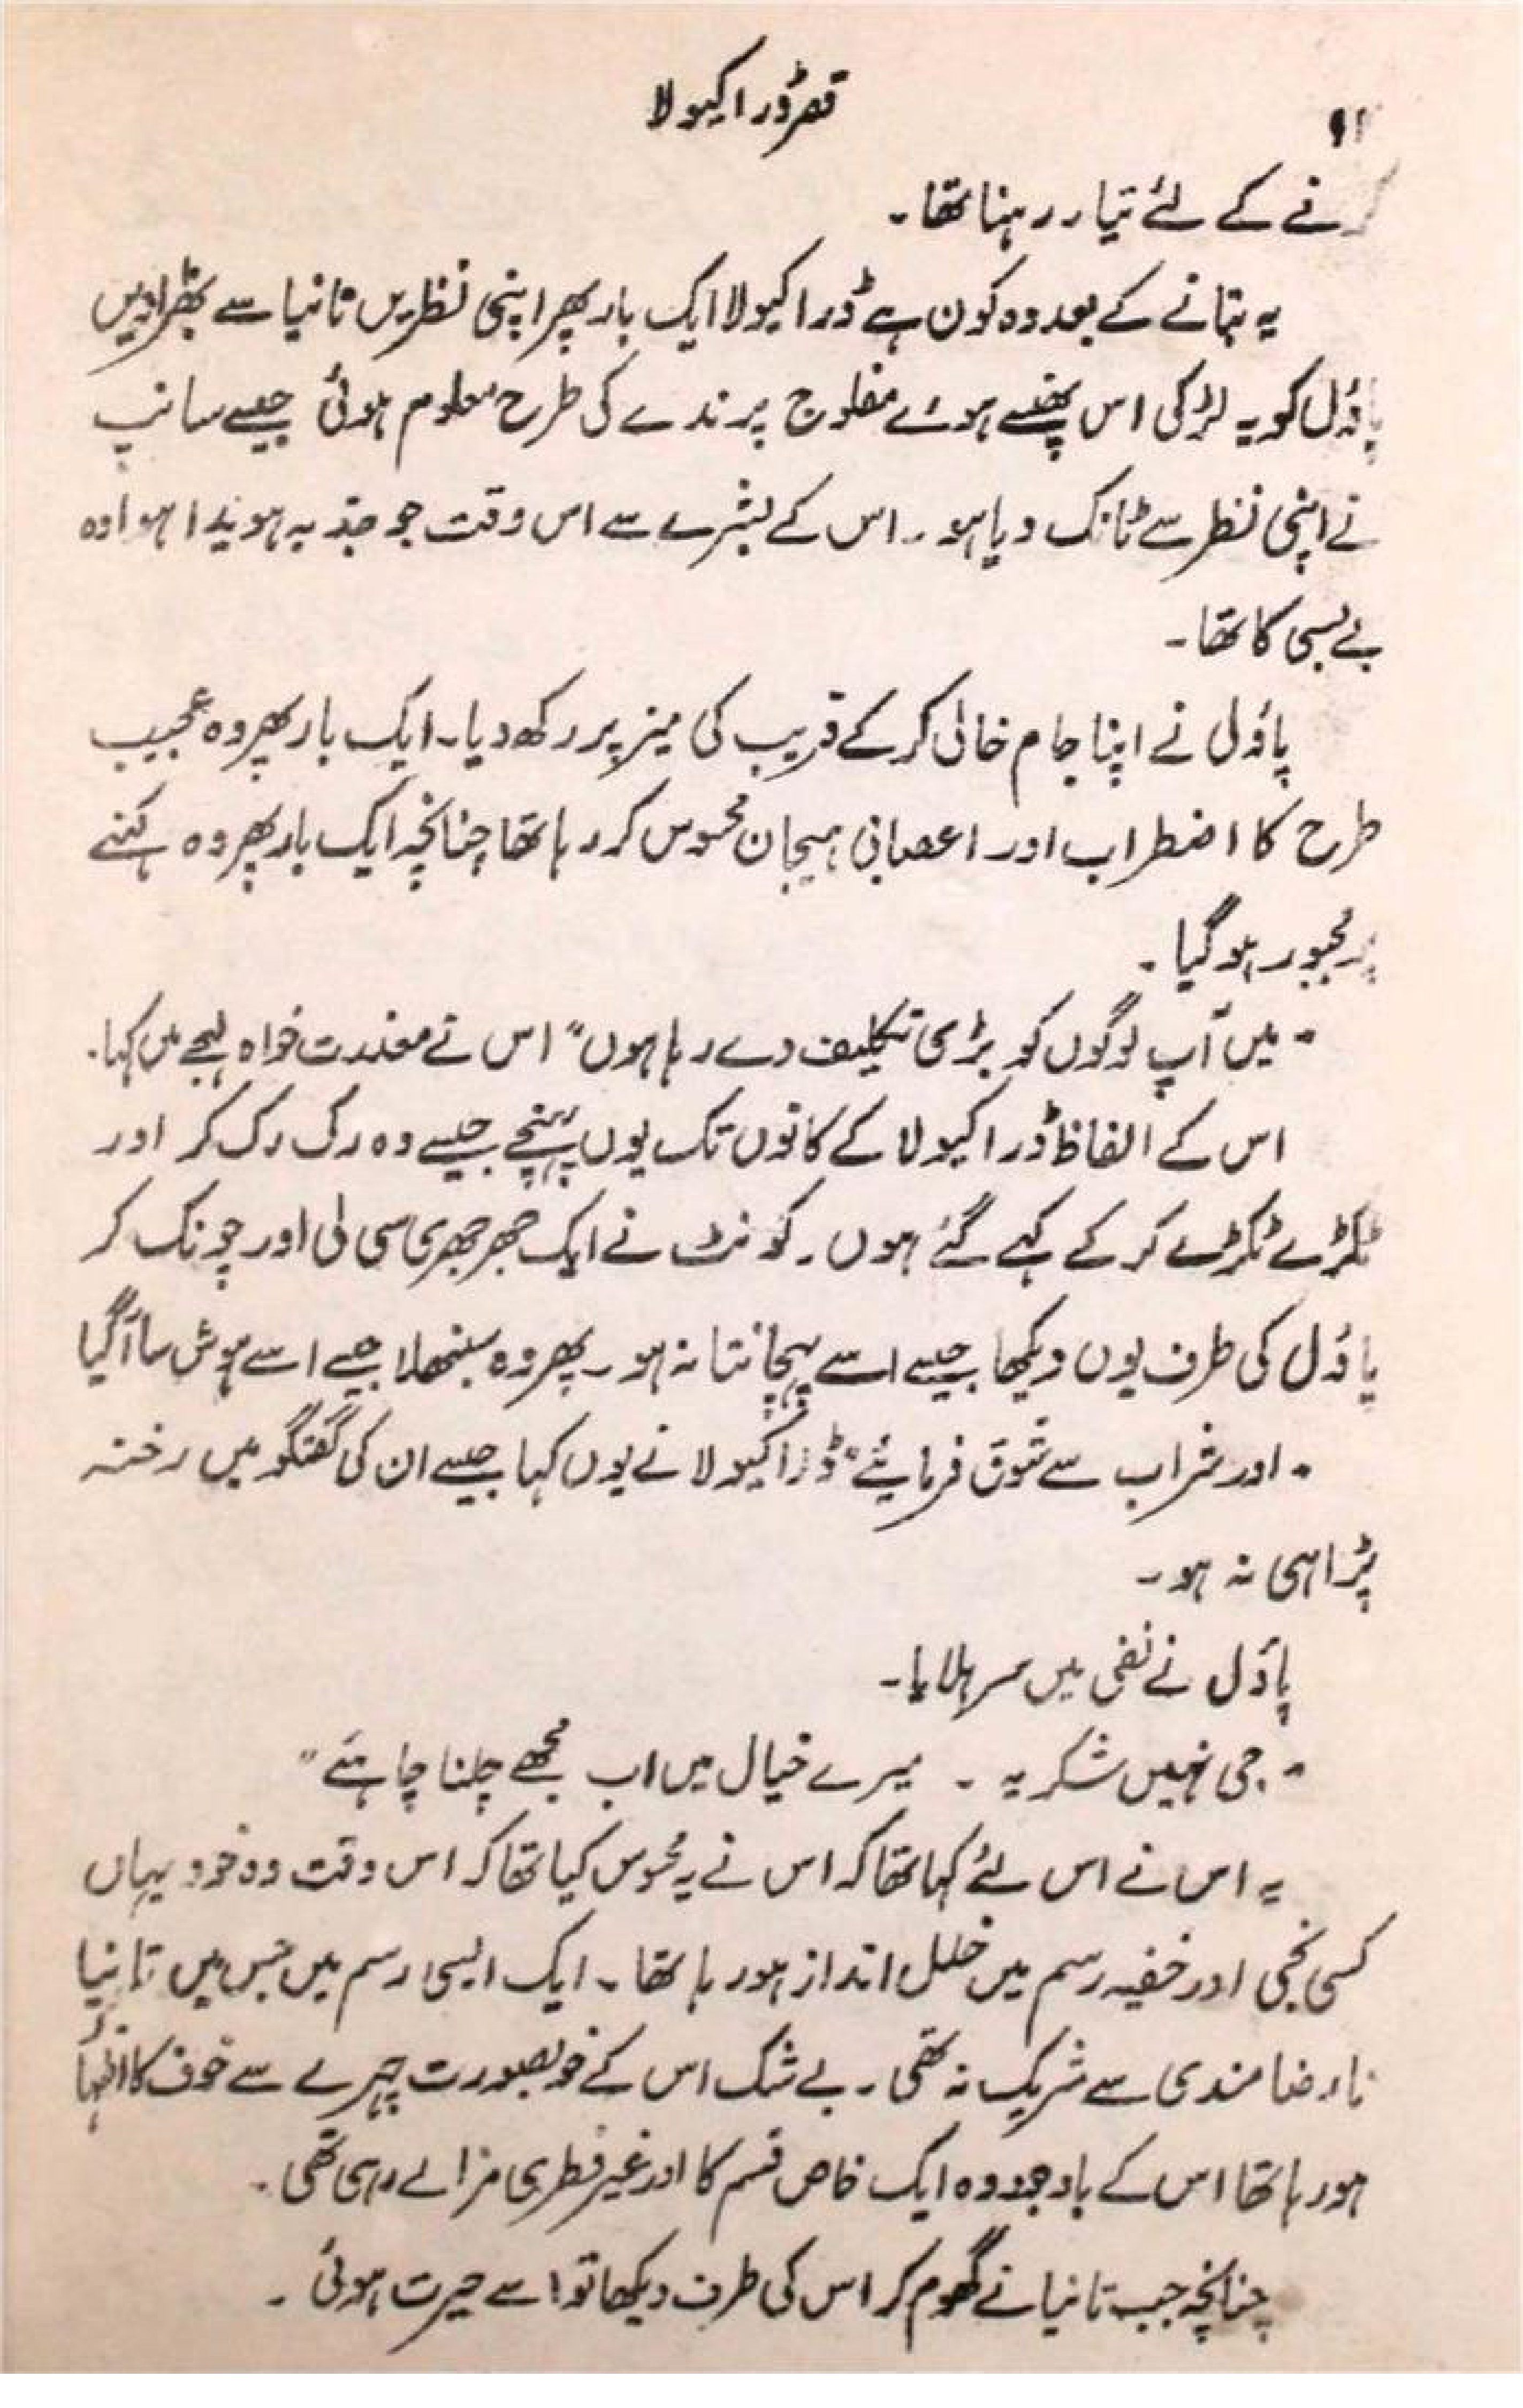 قصر ڈراکیولا
کرنے کے لئے تیار رہنا تھا۔
یہ بتانے کے بعد وہ کون ہے ڈراکیولا ایک بار پھر اپنی نظریں تانیا سے بھڑا دیں
پاؤل کو یہ لڑکی اس پھنسے ہوئے مفلوج پرندے کی طرح معلوم ہوئی جیسے سانپ
نے اپنی نظر سے ٹانک دیا ہو۔ اس کے بشرے سے اس وقت جو جذبہ ہویدا ہوا وہ
بے بسی کا تھا۔
پاؤل نے اپنا جام خالی کر کے قریب کی میز پر رکھ دیا۔ ایک بار پھر وہ عجیب
طرح کا اضطراب اور اعصابی ہیجان محسوس کر رہا تھا چنانچہ ایک بار پھر وہ کہنے
پر مجبور ہو گیا۔
"میں آپ لوگوں کو بڑی تکلیف دے رہا ہوں" اس نے معذرت خواہ لہجے میں کہا۔
اس کے الفاظ ڈراکیولا کے کانوں تک یوں پہنچے جیسے وہ رک رک کر اور
ٹکڑے ٹکڑے کر کے کہے گئے ہوں۔ کونٹ نے ایک جھرجھری سی لی اور چونک کر
پاؤل کی طرف یوں دیکھا جیسے اسے پہچانتا نہ ہو۔ پھر وہ سنبھلا جیسے اسے ہوش سا آگیا
"اور شراب سے شوق فرمایئے" ڈراکیولا نے یوں کہا جیسے ان کی گفتگو میں رخنہ
پڑا ہی نہ ہو۔
پاؤل نے نفی میں سر ہلایا۔
"جی نہیں شکریہ ۔ میرے خیال میں اب مجھے چلنا چاہئے"
یہ اس نے اس لئے کہا تھا کہ اس نے یہ محسوس کیا تھا کہ اس وقت وہ خود یہاں
کسی نجی اور خفیہ رسم میں خلل انداز ہو رہا تھا۔ ایک ایسی رسم میں جس میں تانیا
نارضامندی سے شریک نہ تھی۔ بے شک اس کے خوبصورت چہرے سے خوف کا اظہار
ہو رہا تھا اس کے باوجود وہ ایک خاص قسم کا اور غیر فطری مزا لے رہی تھی۔
چنانچہ جب تانیا نے گھوم کر اس کی طرف دیکھا تو اسے حیرت ہوئی۔